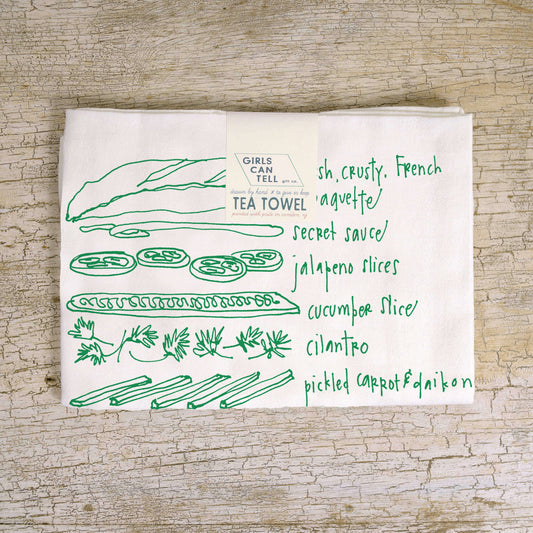 GIRLS
CAN
TELL
drawn by hand to give or keep
TEA TOWEL
sh, crusty. French
aguette
secret sauce
jalapeno slices
cucumber slice
cilantro
pickled carrot & daikon